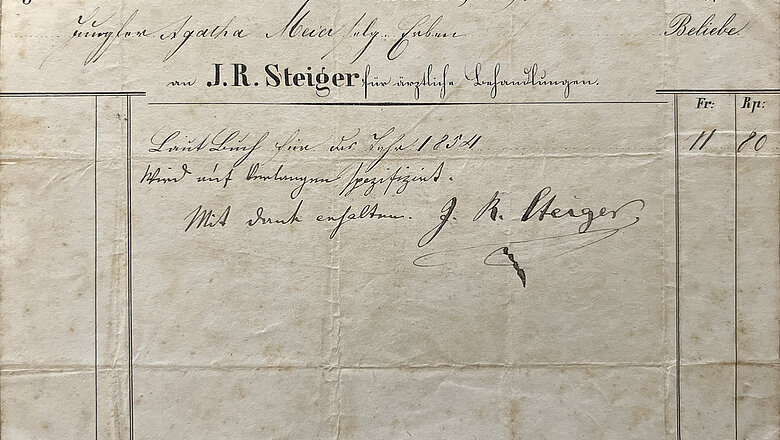 Jungfer Agatha Meier selg. Erben Beliebe
an J. R. Steiger für ärztliche Behandlungen.
Fr: Rp:
Laut Buch für das Jahr 1854 11 80
Wird auf Verlangen spezifizirt.
Mit Dank erhalten. J. R. Steiger